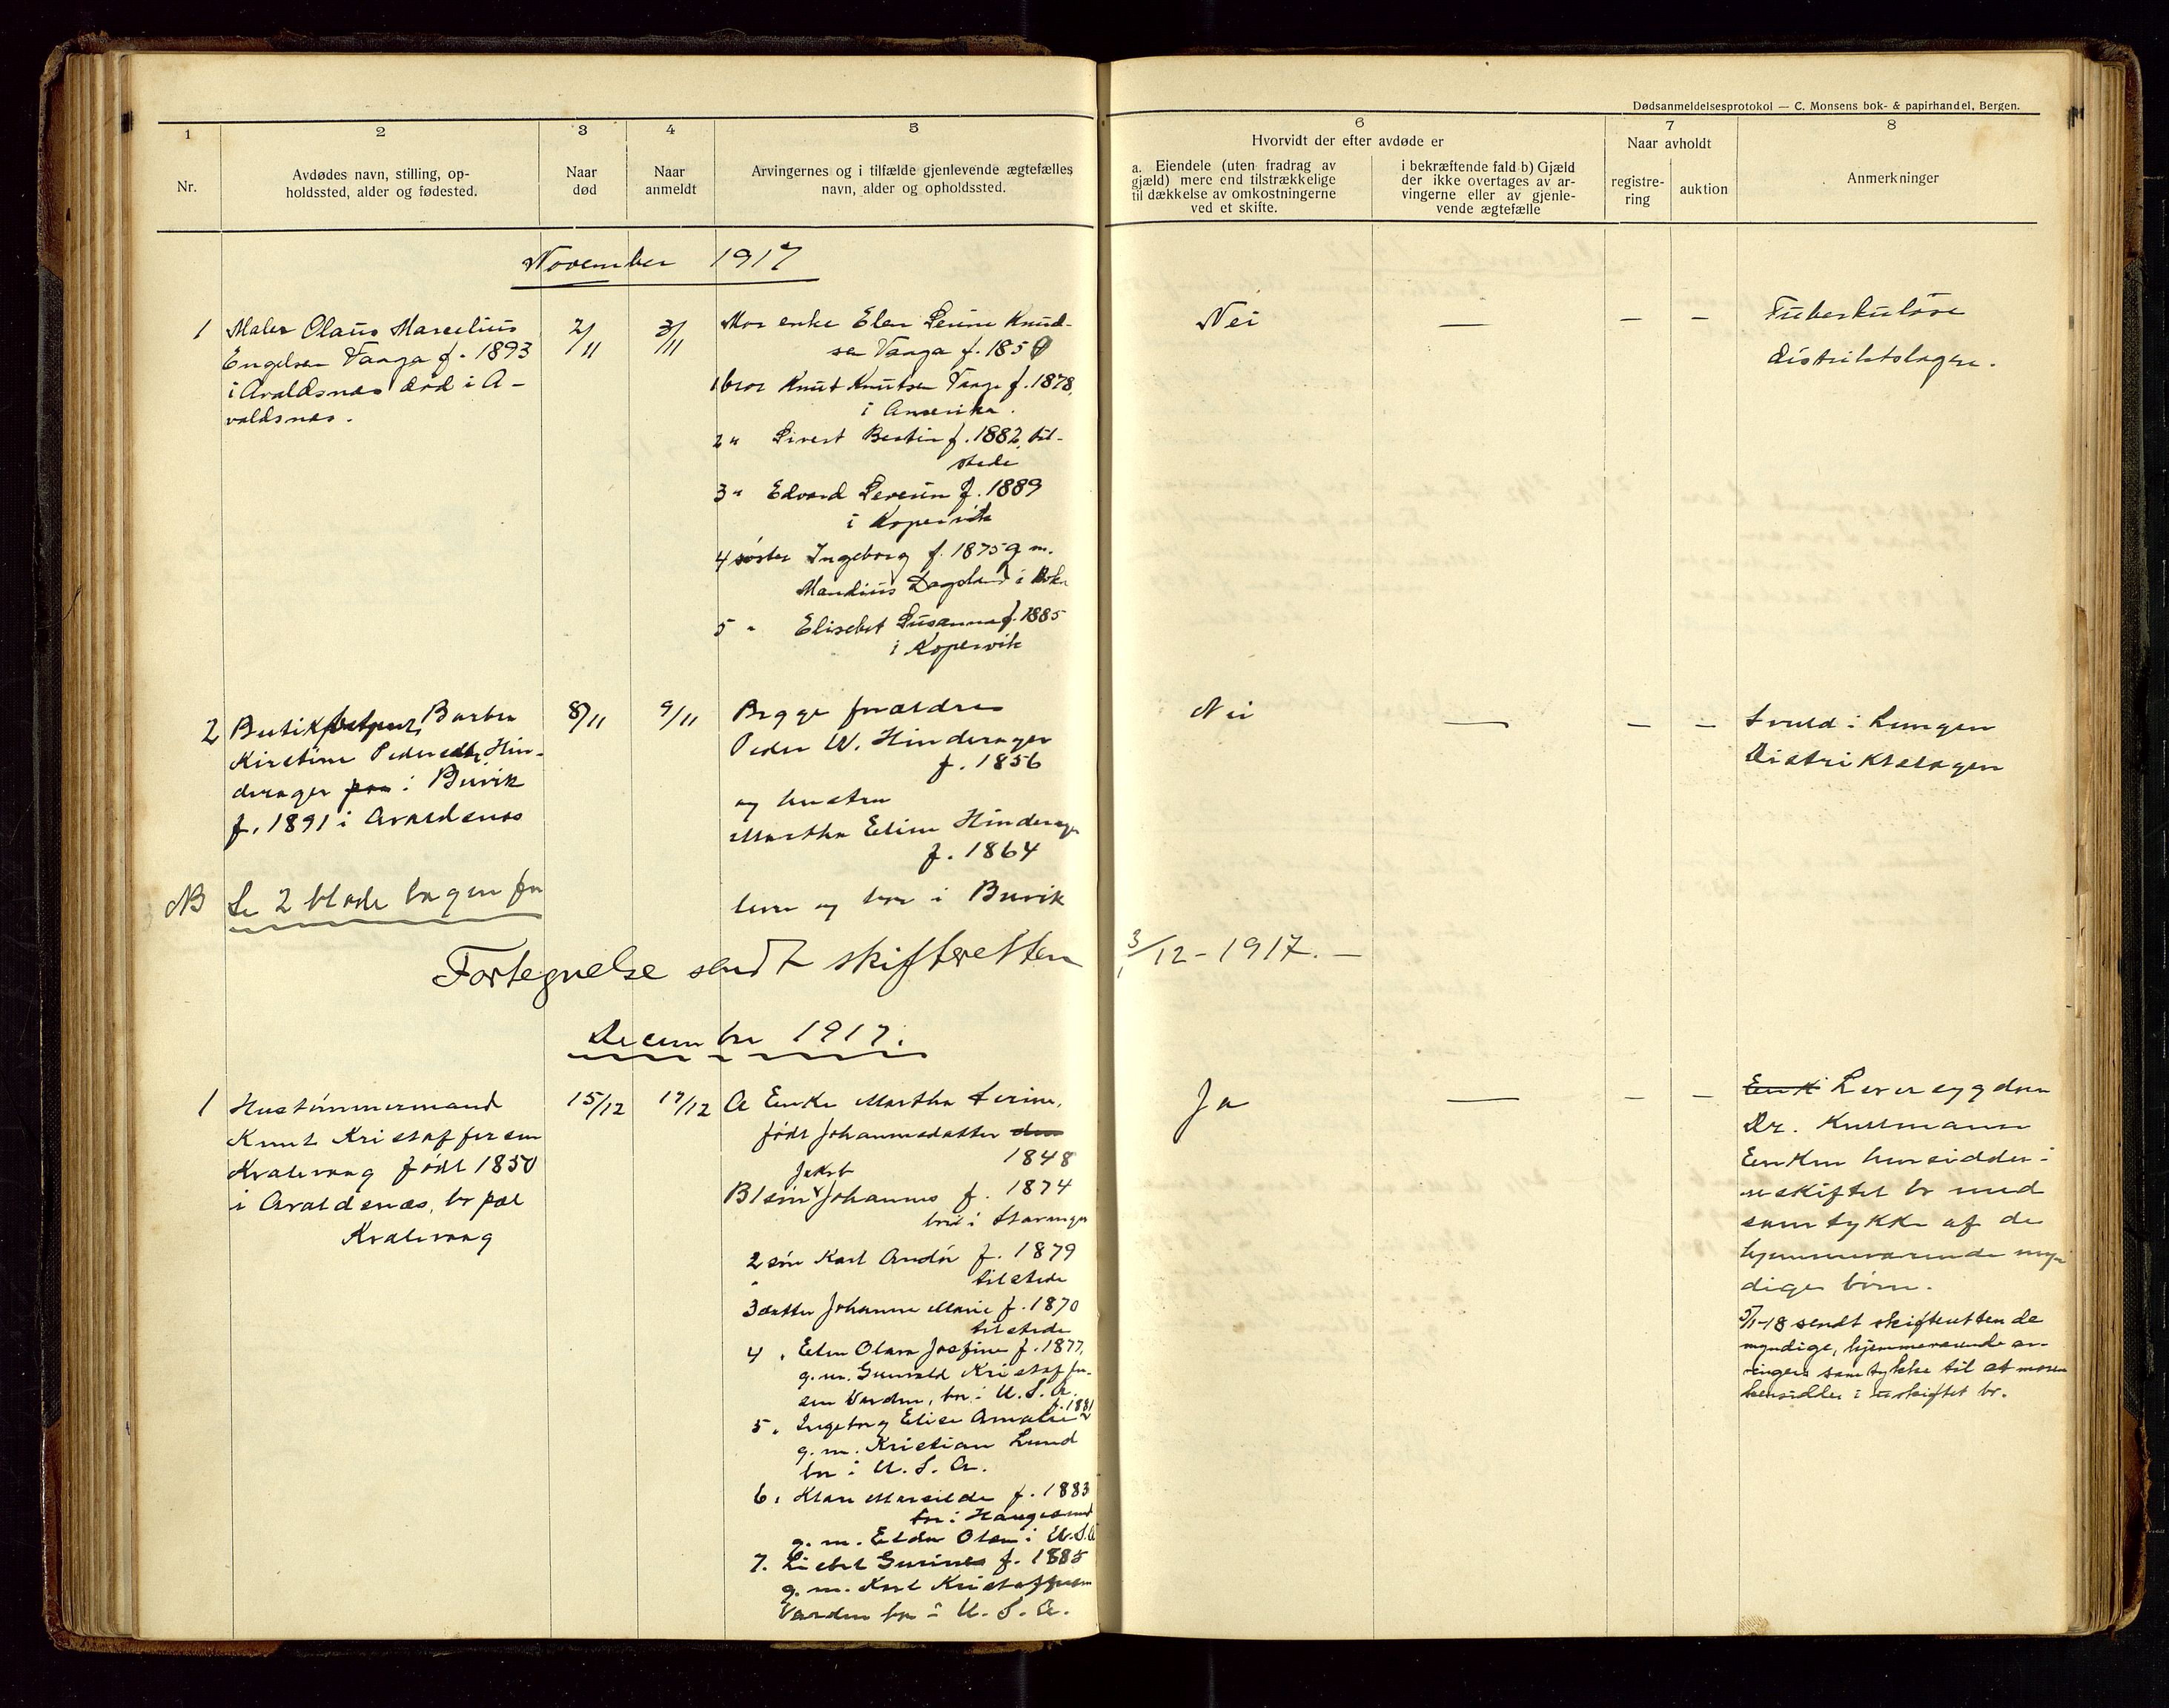 Dødsanmeldelsesprotokol — C. Monsens bok- & papirhandel, Bergen.
1
2
3
4
5
6
7
8
Nr.
Avdødes navn, stilling, op-
holdssted, alder og fødested.
Naar
død
Naar
anmeldt
Arvingernes og i tilfælde gjenlevende ægtefælles
navn, alder og opholdssted.
Hvorvidt der efter avdøde er
a. Eiendele (uten fradrag av
gjæld) mere end tilstrækkelige
til dækkelse av omkostningerne
ved et skifte.
i bekræftende fald b) Gjæld
der ikke overtages av ar-
vingerne eller av gjenle-
vende ægtefælle
Naar avholdt
registre-
ring
auktion
Anmerkninger
November 1917
1
Maler Olaus Marselius
Engelsen Vaaga f. 1893
i Avaldsnes død i A-
valdsnes.
2/11
3/11
Mor enke Elen Serine Knud-
sen Vaaga f. 185
1 bror Knut Knutsen Vaage f. 1878,
i Amerika.
2 " Sivert Bertin f. 1882, til-
stede
3 " Edvard Severin f. 1889
i Kopervik
4 søster Ingeborg f. 1875 g. m.
Mandius Dagsland i Bokn
5 " Elisebet Susanna f. 1885
i Kopervik
Nei
—
—
—
Tuberkuløse
distriktslægen.
2
Butik Barbra
Kirstine Pedersdtr. Hin-
derager paa i Buvik
f. 1891 i Avaldsnes
8/11
9/11
Begge forældre
Peder W. Hinderager
f. 1856
og hustru
Martha Eline Hinderager
f. 1864
leve og bor i Buvik
Nei
—
—
—
Svulst i Lungen
Distriktslægen
NB Se 2 blade bagenfor
Fortegnelse sendt skifteretten 3/12 - 1917. —
December 1917.
1
Hustømmermand
Knut Kristoffersen
Kvalevaag født 1850
i Avaldsnes, br paa
Kvalevaag
15/12
17/12
A Enke Martha Serine,
født Johannesdatter den
1848
Jakob
B 1 søn Johannes f. 1874
bor i Stavanger
2 søn Karl Andor f. 1879
tilstede
3 datter Johanne Marie f. 1870
tilstede
4 " Elen Olava Josefine f. 1877,
g. m. Gunvald Kristoffer-
sen Varden, bor i U. S. A.
5 " Ingeborg Elise Amalie f. 1881
g. m. Kristian Lund
bor i U. S. A.
6 " Klara Marselde f. 1883
bor i Haugesund
g. m. Elder Olsen i U.S.A
7. Lisbet Gurine f. 1885
g. m. Karl Kristoffersen
Varden bor i U. S. A.
Ja
—
—
—
Enk Leversygdom
Dr. Kullmann
Enken hensidder i
uskiftet bo med
samtykke af de
hjemmeværende myn
dige børn.
5/1-18 sendt skifteretten de
myndige, hjemmeværende ar-
vingers samtykke til at moren
hensidder i uskiftet bo.